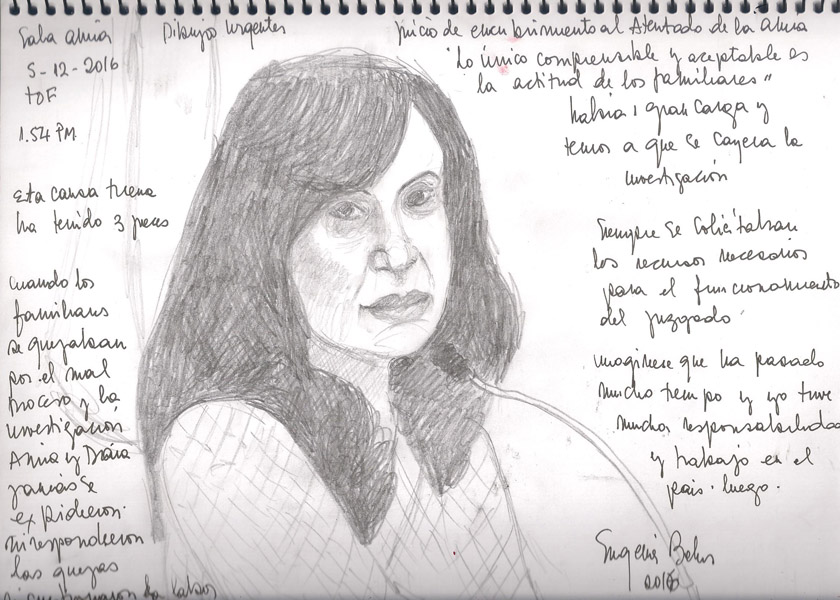 Sala AMIA
5-12-2016
TOF
1.54 PM
Dibujos Urgentes
Juicio de encubrimiento al Atentado de la Amia
"Lo único comprensible y aceptable es
la actitud de los familiares"
había gran carga y
temor a que se cayera la
investigación
Esta causa
ha tenido 3
Cuando los
familiares
se quejaban
por el mal
proceso y la
investigación
Anna y
jamás se
expidieron
ni respondieron
las quejas
Siempre se solicitaban
los recursos necesarios
para el funcionamiento
del juzgado
imagínese que ha pasado
mucho tiempo y yo tuve
muchas responsabilidades
y trabajo en el
país. luego.
Eugenia Bekes
2016